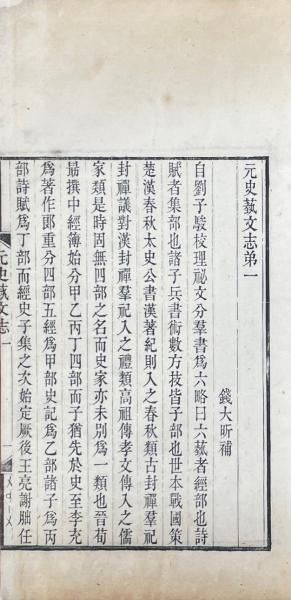 元史蓺文志弟一
錢大昕補
自劉子駿校理祕文分羣書爲六略曰六蓺者經部也詩
賦者集部也諸子兵書術數方技皆子部也世本戰國策
楚漢春秋太史公書漢著紀則入之春秋類古封禪羣祀
封禪議對漢封禪羣祀入之禮類高祖傳孝文傳入之儒
家類是時固無四部之名而史家亦未别爲一類也晉荀
勗撰中經簿始分甲乙丙丁四部而子猶先於史至李充
爲著作郎重分四部五經爲甲部史記爲乙部諸子爲丙
部詩賦爲丁部而經史子集之次始定厥後王亮謝朏任
元史蓺文志一
一